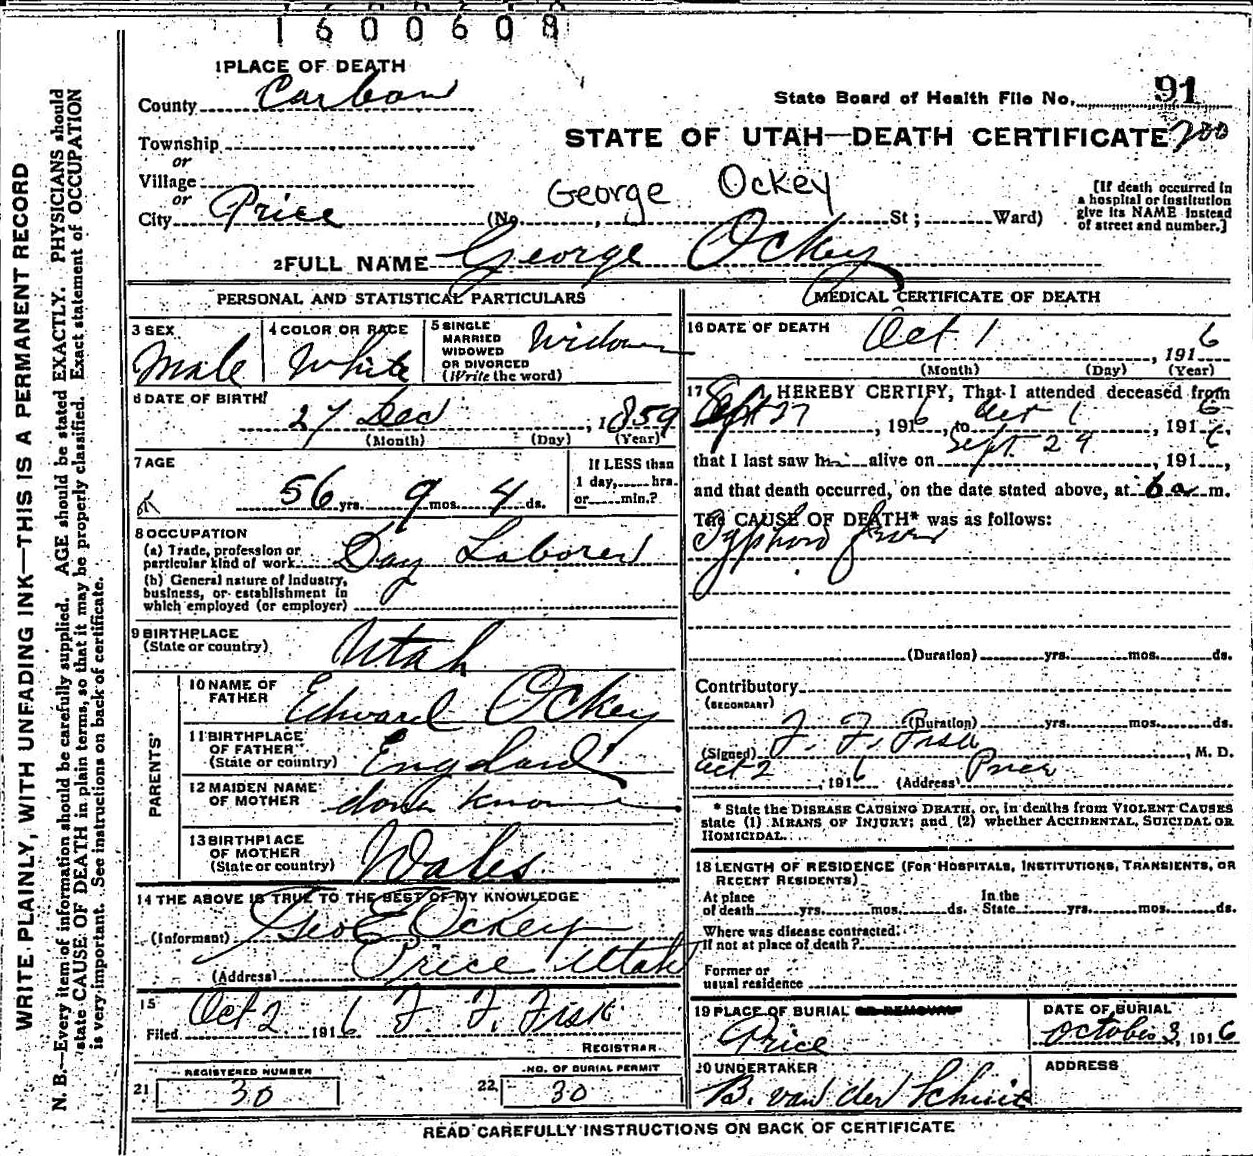 1600608
1 PLACE OF DEATH
County Carbon
State Board of Health File No. 91
Township
or
STATE OF UTAH—DEATH CERTIFICATE 200
Village
or
George Ockey
City Price (No. , St ; Ward)
[If death occurred in
a hospital or institution
give its NAME instead
of street and number.]
2 FULL NAME George Ockey
PERSONAL AND STATISTICAL PARTICULARS
3 SEX Male
4 COLOR OR RACE White
5 SINGLE
MARRIED
WIDOWED
OR DIVORCED
(Write the word)
Widow
6 DATE OF BIRTH
27 Dec , 1859
(Month) (Day) (Year)
7 AGE
56 yrs. 9 mos. 4 ds.
If LESS than
1 day, hrs.
or min.?
8 OCCUPATION
(a) Trade, profession or
particular kind of work Day Laborer
(b) General nature of Industry,
business, or establishment in
which employed (or employer)
9 BIRTHPLACE
(State or country) Utah
PARENTS'
10 NAME OF
FATHER Edward Ockey
11 BIRTHPLACE
OF FATHER
(State or country) England
12 MAIDEN NAME
OF MOTHER dont know
13 BIRTHPLACE
OF MOTHER
(State or country) Wales
14 THE ABOVE IS TRUE TO THE BEST OF MY KNOWLEDGE
(Informant) Geo E Ockey
(Address) Price Utah
15
Filed Oct 2 1916 F. F. Fisk
REGISTRAR
REGISTERED NUMBER
21 30
NO. OF BURIAL PERMIT
22 30
MEDICAL CERTIFICATE OF DEATH
16 DATE OF DEATH Oct 1 , 1916
(Month) (Day) (Year)
17 I HEREBY CERTIFY, That I attended deceased from
Sept 27 , 1916, to Oct 1 , 1916
that I last saw him alive on Sept. 29 , 1916,
and that death occurred, on the date stated above, at 6 a m.
The CAUSE OF DEATH* was as follows:
Typhoid fever
(Duration) yrs. mos. ds.
Contributory
(SECONDARY)
(Duration) yrs. mos. ds.
(Signed) F. F. Fisk , M. D.
Oct 2 , 1916 (Address) Price
* State the DISEASE CAUSING DEATH, or, in deaths from VIOLENT CAUSES
state (1) MEANS OF INJURY; and (2) whether ACCIDENTAL, SUICIDAL OR
HOMICIDAL.
18 LENGTH OF RESIDENCE (FOR HOSPITALS, INSTITUTIONS, TRANSIENTS, OR
RECENT RESIDENTS)
At place
of death yrs. mos. ds.
In the
State yrs. mos. ds.
Where was disease contracted
If not at place of death?
Former or
usual residence
19 PLACE OF BURIAL OR REMOVAL
Price
DATE OF BURIAL
October 3, 1916
20 UNDERTAKER
B. van der
ADDRESS
READ CAREFULLY INSTRUCTIONS ON BACK OF CERTIFICATE
WRITE PLAINLY, WITH UNFADING INK—THIS IS A PERMANENT RECORD
N. B.—Every item of information should be carefully supplied. AGE should be stated EXACTLY. PHYSICIANS should
state CAUSE OF DEATH in plain terms, so that it may be properly classified. Exact statement of OCCUPATION
is very important. See instructions on back of certificate.